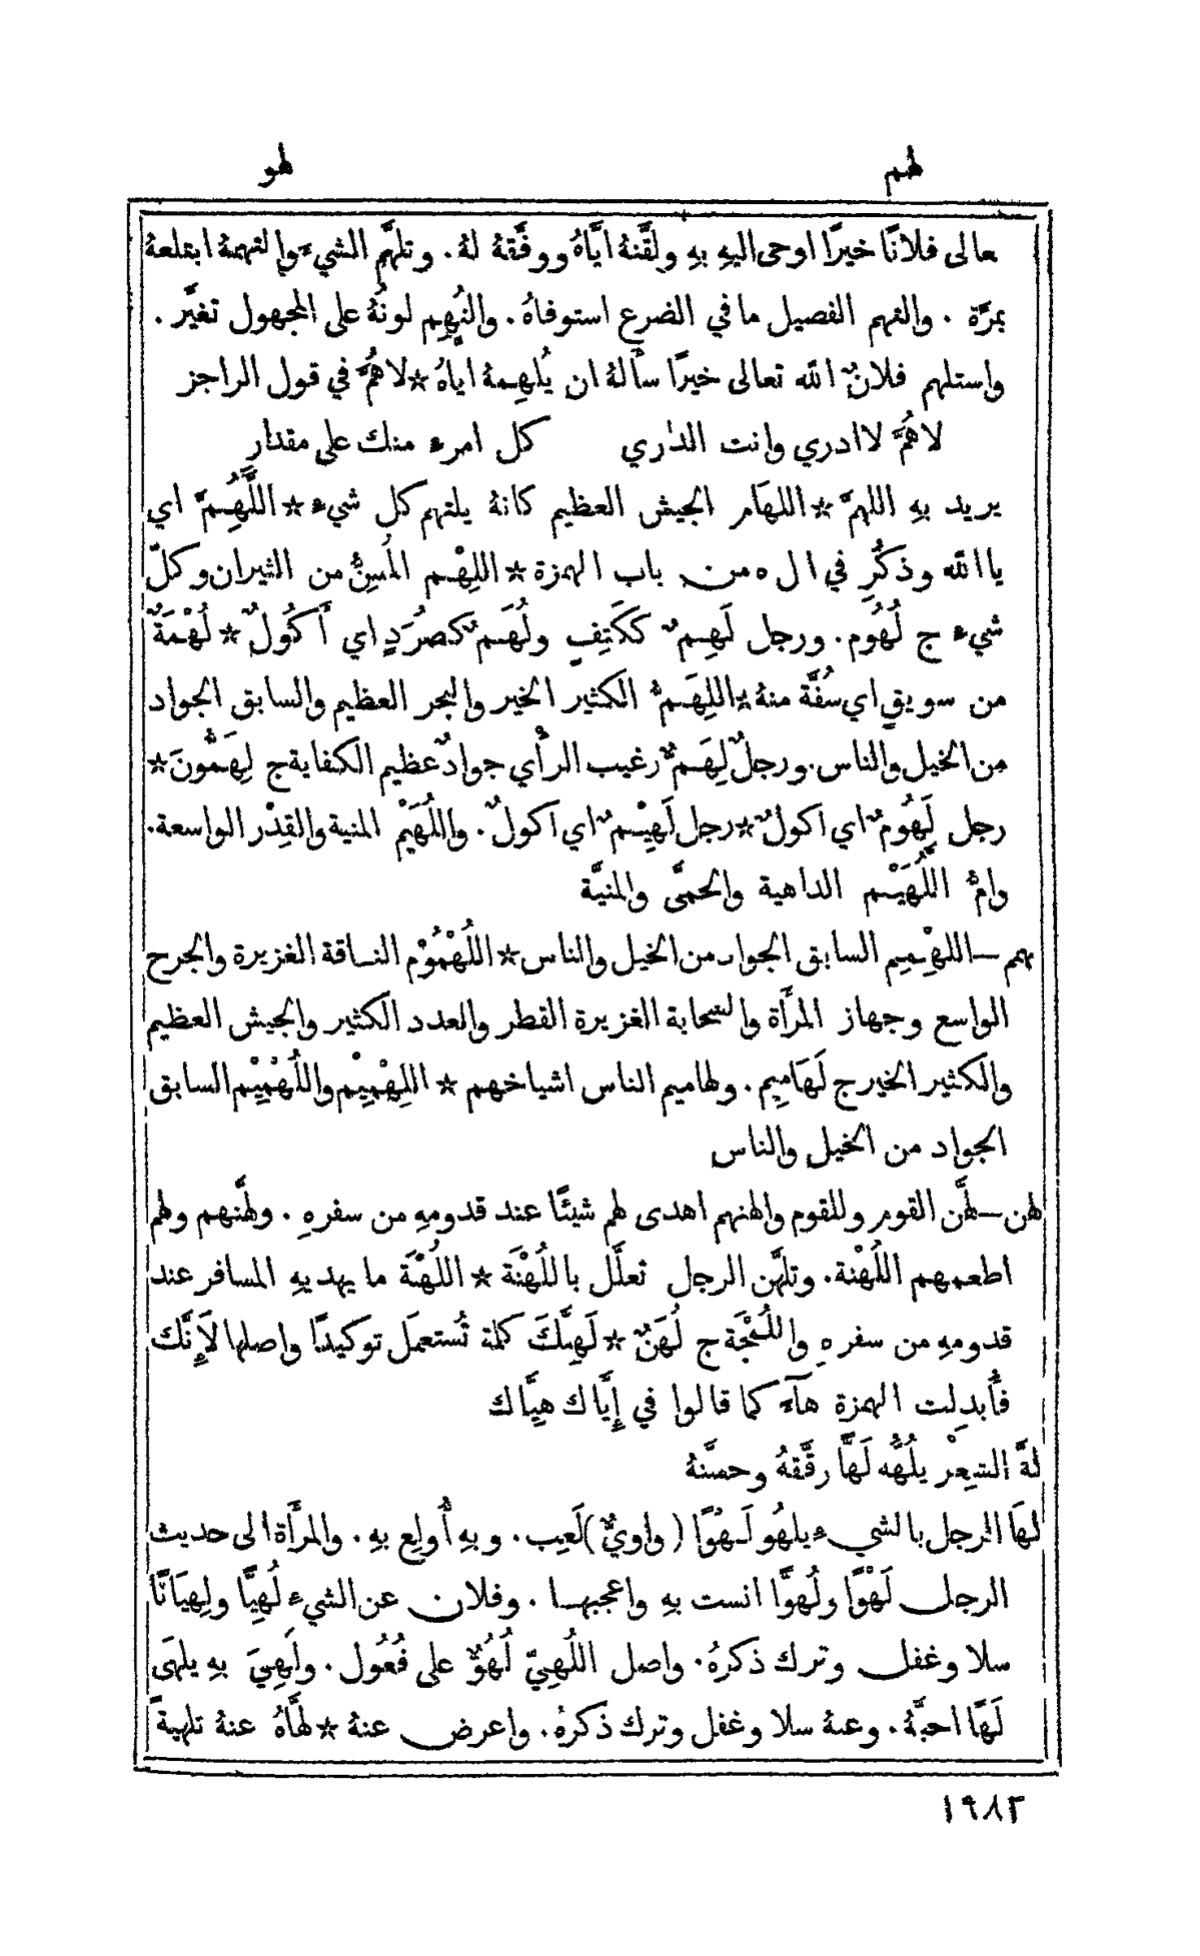 لهم
لهو
عالى فلانًا خيرًا اوحى اليهِ بهِ ولقَّنهُ ايَّاهُ ووفَّقهُ لهُ. وتلهَّم الشيءَ والتهمهُ ابتلعهُ
بمرَّة. والتهم الفصيل ما في الضرع استوفاهُ. والتُهِم لونُهُ على المجهول تغيَّر.
واستلهم فلانٌ الله تعالى خيرًا سأَلهُ ان يُلهِمهُ اياهُ ☆ لاهُمَّ في قول الراجز
لاهُمَّ لا ادري وانت الداري كل امرء منك على مقدار
يريد بهِ اللهمَّ ☆ اللهَام الجيش العظيم كانهُ يلتهم كل شيء ☆ اللَّهُمَّ اي
يا الله وذُكِر في ا ل ه من باب الهمزة ☆ اللِهْم المُسِنُّ من الثيران وكلّ
شيء ج لُهُوم. ورجل لَهِمٌ ككَتِفٍ ولُهَمٌ كصُرَدٍ اي أَكُولٌ ☆ لُهْمَةٌ
من سويقٍ اي سُفَّة منهُ ☆ اللِهَمُّ الكثير الخير والبحر العظيم والسابق الجواد
من الخيل والناس. ورجلٌ لِهَمٌّ رغيب الرأْي جوادٌ عظيم الكفاية ج لِهَمُّونَ ☆
رجل لَهُومٌ اي اكولٌ ☆ رجل لَهِيْمٌ اي اكولٌ. واللُهَيْم المنية والقِدْر الواسعة.
وامُّ اللُّهَيْم الداهية والحمَّى والمنيَّة
لهم — اللِهْمِم السابق الجواد من الخيل والناس ☆ اللُهْمُوْم الناقة الغزيرة والجرح
الواسع وجهاز المرأَة والسحابة الغزيرة القطر والعدد الكثير والجيش العظيم
والكثير الخير ج لَهَامِيم. ولهاميم الناس اشياخهم ☆ اللِهْمِيْم واللُهْمِيْم السابق
الجواد من الخيل والناس
لهن — لهَّن القوم وللقوم والهنهم اهدى لهم شيئًا عند قدومهِ من سفرهِ. ولهَّنهم ولهم
اطعمهم اللُهْنة. وتلهَّن الرجل تعلَّل باللُهْنَة ☆ اللُهْنَة ما يهديهِ المسافر عند
قدومهِ من سفرهِ واللُمْجَة ج لُهَنٌ ☆ لَهِنَّكَ كلمة تُستعمَل توكيدًا واصلها لَإِنَّك
فأُبدِلت الهمزة هآءً كما قالوا في إِيَّاك هِيَّاك
لهَّ الشِعْر يلُهُّه لَهًّا رقَّقهُ وحسَّنهُ
لهَا الرجل بالشيء يلهُو لَهْوًا (واويٌّ) لَعِب. وبهِ أُولِع بهِ. والمرأَة الى حديث
الرجل لَهْوًا ولُهوًّا انست بهِ واعجبها. وفلان عن الشيء لُهِيًّا ولِهيَانًا
سلا وغفل وترك ذكرهُ. واصل اللُهِيّ لُهُوٌّ على فُعُول. ولَهِيَ بهِ يلهَى
لَهًا احبَّهُ. وعنهُ سلا وغفل وترك ذكرهُ. واعرض عنهُ ☆ لهَّاهُ عنهُ تلهيةً
١٩٨٣